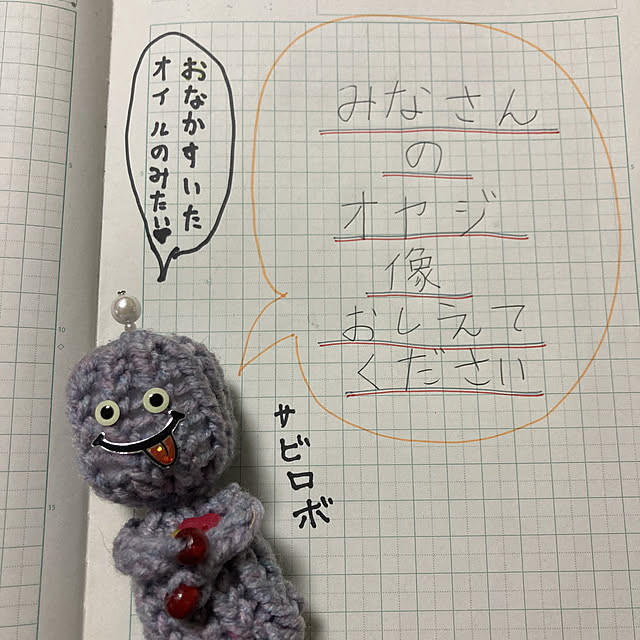 おなかすいた
オイルのみたい♥
みなさん
の
オヤジ
像
おしえて
ください
サビロボ